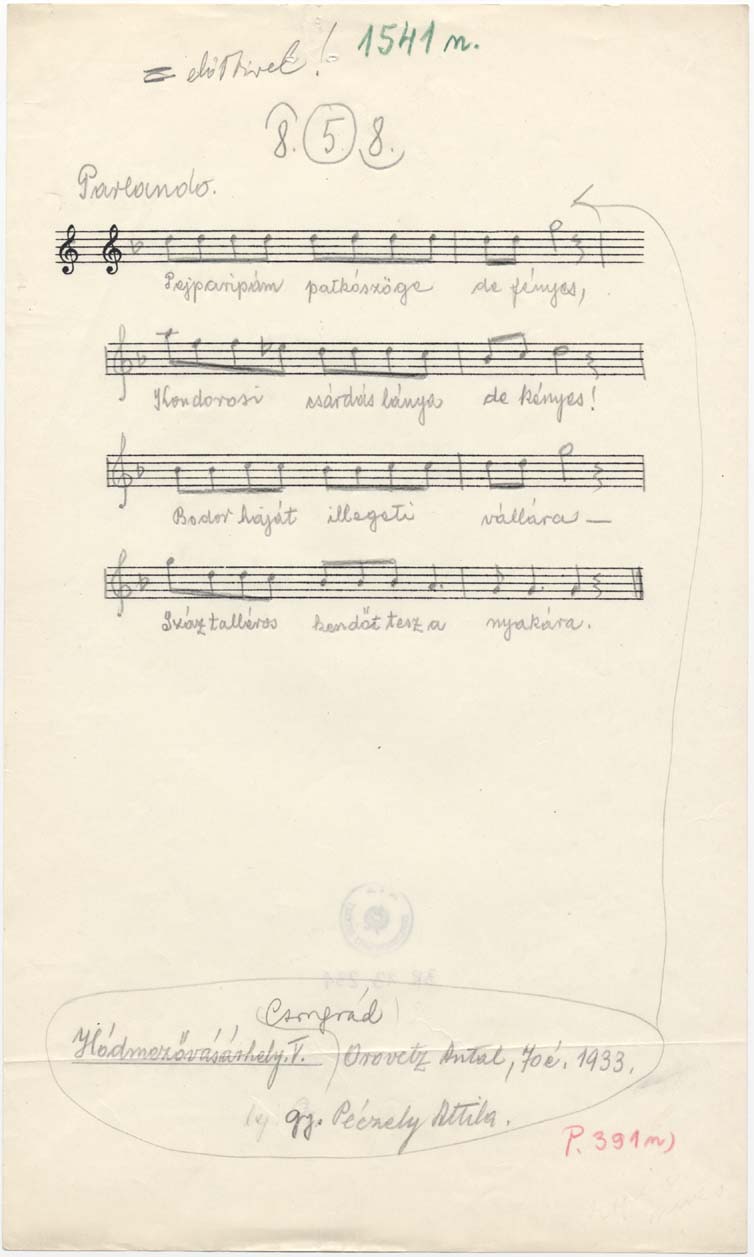 1541 n.
8. 5 8.
Parlando.
Pejparipám patkószöge de fényes,
Kondorosi csárdás lánya de kényes!
Bodor haját illegeti vállára —
Száz talléros kendőt tesz a nyakára.
Csongrád
Hódmezővásárhely. V. Orovetz Antal, 70é. 1933.
gy. Péczely Attila.
P. 391 n)